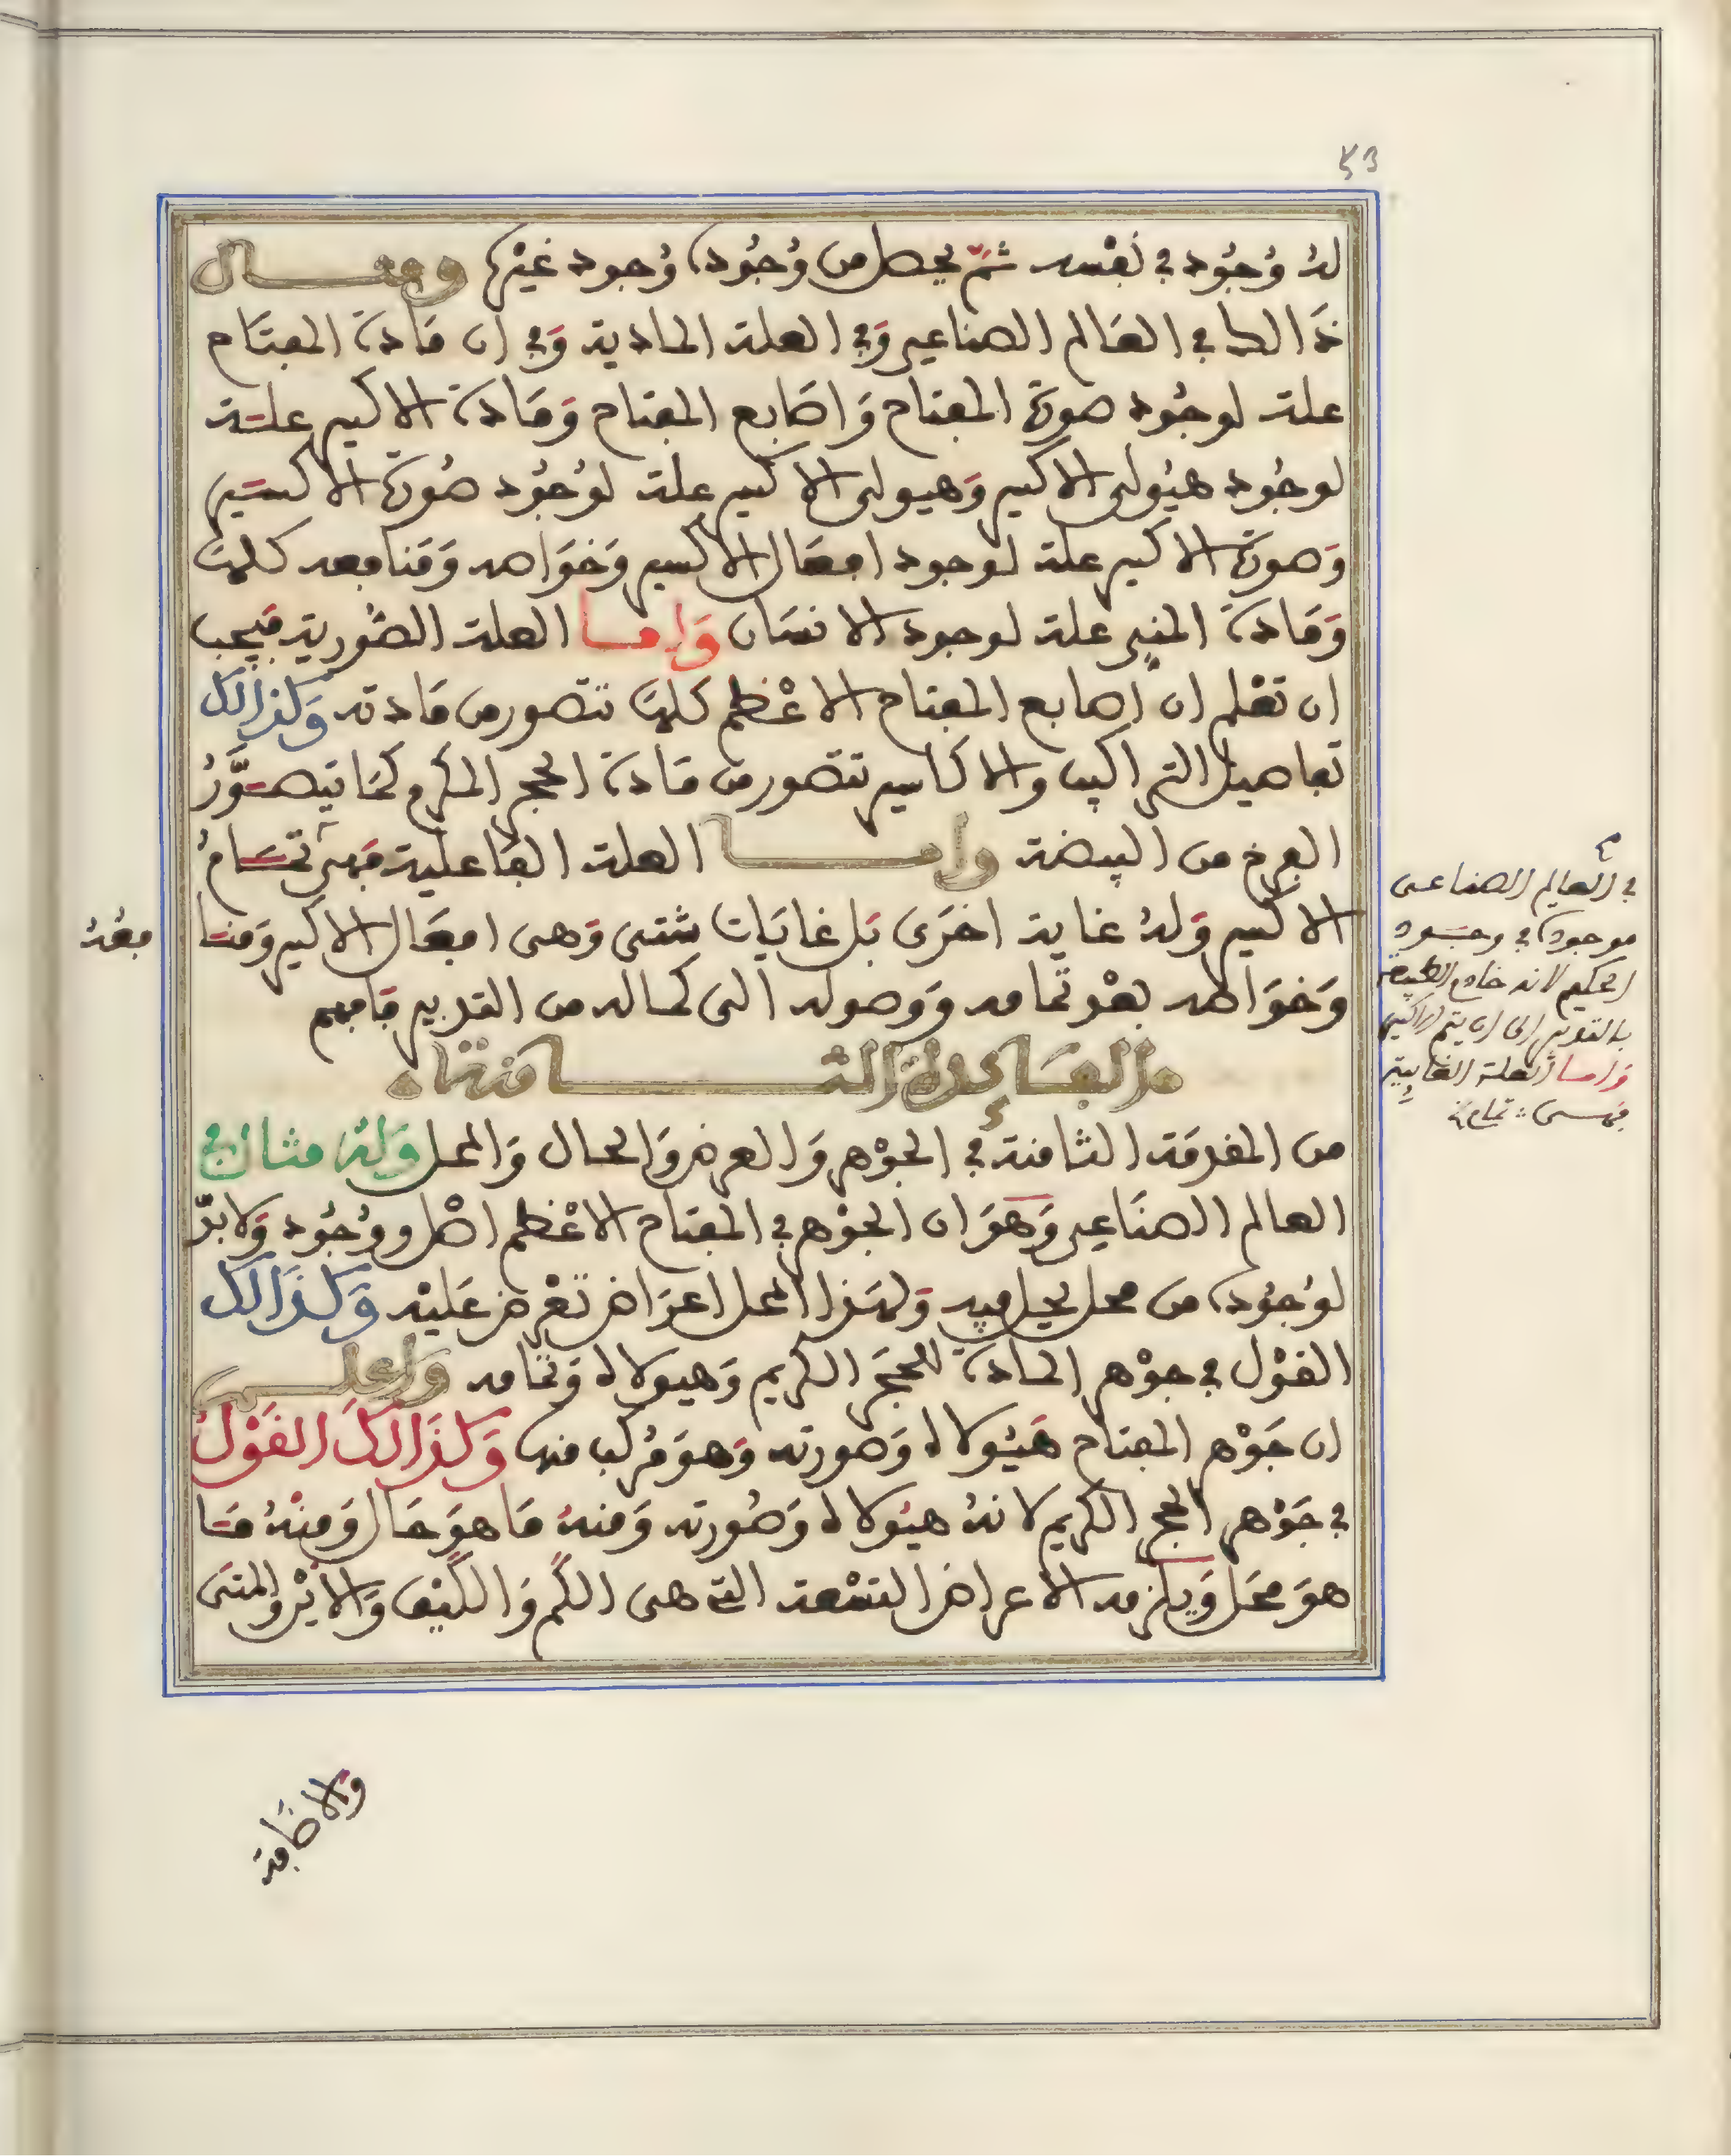 53
لهُ وُجُود في نَفْسه ثمّ يحصل من وُجُوده وُجود غيْره ومثال
ذَالك في العَالم الصناعي وَفي العلة المادية وَفي ان مَادة المفتَاح
علة لوجُود صورة المفتاح وَاصَابع المفتاح وَمَادة الاكسير علة
لوجُود هيُولى الاكسير وَهيولى الاكسير علة لوُجُود صُورة الاكسير
وَصورة الاكسير علة لوجود افعَال الاكسير وَخوَاصه وَمَنافعه كلهَا
وَمَادة المني علة لوجود الانسَان وَامـا العلة الصُّورية فيَجب
ان تعْلم ان اصابع المفتاح الاعْظم كلهَا تتصور من مَادته وَكذَالك
تفاصيل التراكيب والاكاسير تتصور من مَادة الحجر المكرم كمَا يتصَوَّرُ
الفرخ من البيضة وامـا العلة الفَاعلية فهى تمَامُ
الاكسير وَلهُ غاية اخرَى بَل غايَات شتى وَهى افعَال الاكسير وَمنَا
فعُهُ
وَخوَاصه بعْد تمامه وَوصوله الى كماله من التدبير فافهم
الفَائدة الثـامنة
من المقدمَة الثامنة في الجوْهر وَالعرض وَالحال وَالمحل وَلهُ مثال في
العالم الصنَاعي وَهوَ ان الجوْهر في المفتاح الاعْظم اصْل ووُجُود وَلابدّ
لوُجُوده من محل يحل فيه وَلهَذا المحل اعرَاض تعْرض عَليْه وَكذَالك
القوْل في جوْهر المادة للحجَر الكريم وَهيولاه وَتمَامه وَاعلـم
ان جَوْهر المفتاح هَيُولاه وَصورته وَهوَ مُركب منها وَكذَالكَ القَوْلُ
في جَوْهر الحجر الكريم لانهُ هيُولاه وَصُورته وَمنهُ مَا هوَ حَال وَمنْهُ مَا
هوَ محَل وَيلزمه الاعراض التسْعة التي هى الكَم وَالكَيْف وَالايْن والمتَى
والاضَافة
في العالم الصناعى
موجودة في وجود
الحكيم لانه خادم الطبيعة
بالتدبير الى ان يتم الاكسير
وَامـا العلة الغايية
فهـى تمام